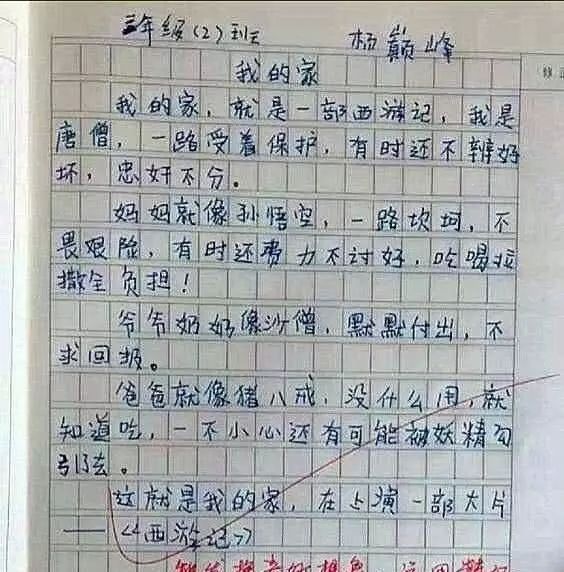 三年级(2)班 杨巅峰
我的家
我的家,就是一部西游记,我是
唐僧,一路受着保护,有时还不辨好
坏,忠奸不分。
妈妈就像孙悟空,一路坎坷,不
畏艰险,有时还费力不讨好,吃喝拉
撒全负担!
爷爷奶奶像沙僧,默默付出,不
求回报。
爸爸就像猪八戒,没什么用,就
知道吃,一不小心还有可能被妖精勾
引去。
这就是我的家,在上演一部大片
——《西游记》